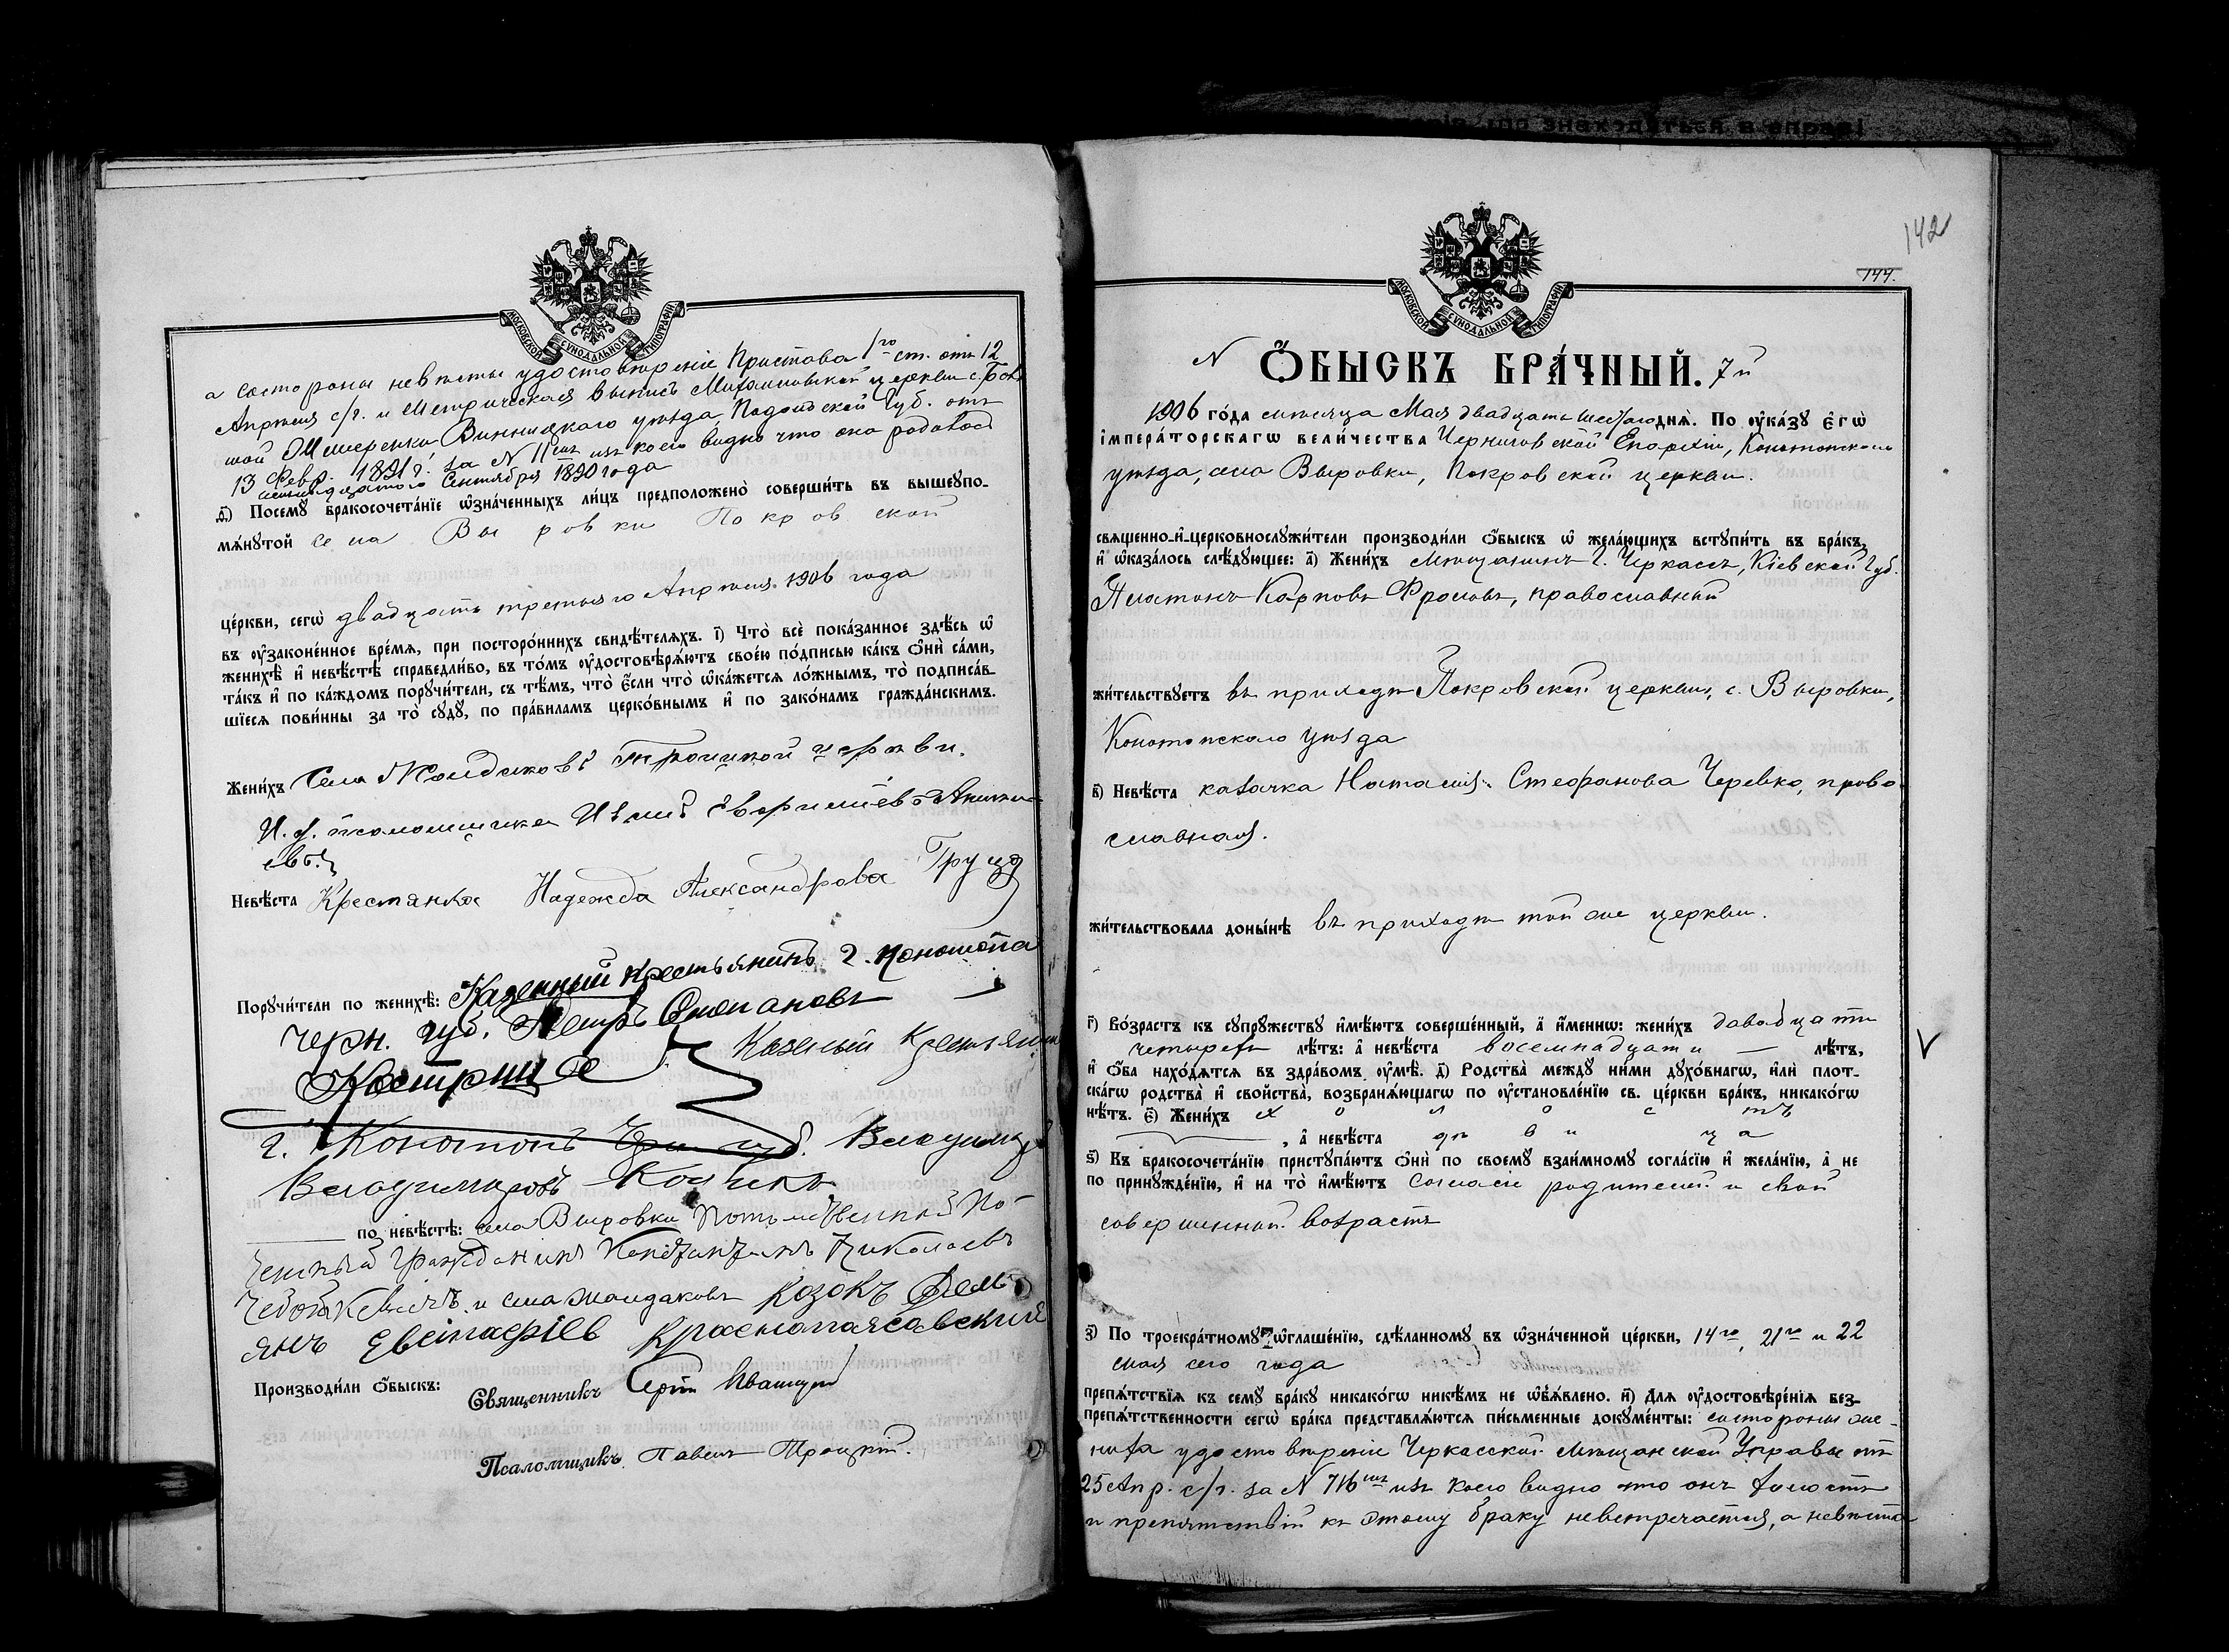 МОСКОВСКОЙ СѴНОДАЛЬНОЙ ТИПОГРАФІИ
а со стороны невѣсты удостовѣреніе Пристава 1го ст. отъ 12
Апрѣля с/г. и метрическая выпись Михаиловской церкви с.
Винницкаго уѣзда, Подольской Губ. отъ
13 Февр. 1891 г. за N 11 изъ коего видно что она родилась
Сентября 1890 года
д҃) Посемꙋ бракосочета́нїе ѡ҆зна́ченныхъ ли́цъ предположено̀ соверши́ть въ вышеꙋпо-
мѧ́нꙋтой села Выровки Покровской
це́ркви, сегѡ̀ двадцать третьяго Апрѣля 1906 года
въ ᲂу҆зако́нённое вре́мѧ, при посторо́ннихъ свидѣ́телѧхъ. і҃) Что̀ всѐ пока́занное здѣ́сь ѡ҆
женихѣ̀ и҆ невѣ́стѣ справедли́во, въ то́мъ ᲂу҆достовѣрѧ́ютъ свое́ю по́дписью ка́къ ѻ҆нѝ са́ми,
та́къ и҆ по ка́ждомъ порꙋчи́тели, съ тѣ́мъ, что̀ є҆́сли что̀ ѡ҆ка́жетсѧ ло́жнымъ, то̀ подписа́в-
шїесѧ пови́нны за то̀ сꙋдꙋ̀, по пра́виламъ церко́внымъ и҆ по зако́намъ гражда́нскимъ.
Жени́хъ Села Жолдаковъ Троицкой церкви.
И. д. псаломщика
евъ.
Невѣ́ста Крестянка Надежда Александрова Груца
Порꙋчи́тели по женихѣ̀: Казенный крестьянинъ г. Конотопа
Черн. губ. Петръ Степановъ
Кострица Казеный Крестянинъ
г. Конотопъ Чер. губ. Владимиръ
Владимировъ
по невѣ́стѣ: села Выровки Потомственный По-
четный Гражданинъ Константинъ Николаевъ
и села Жолдаковъ козокъ Демь
янъ Евстафіевъ Краснопаясовскій
Производи́ли ѻ҆́быскъ: Священникъ
Псаломщикъ Павелъ Троцкій.
142
144.
МОСКОВСКОЙ СѴНОДАЛЬНОЙ ТИПОГРАФІИ
N Ѻ҆́БЫСКЪ БРА́ЧНЫЙ. 7й
1906 го́да мѣсяца Мая двадцать шестаго днѧ̀. По ᲂу҆ка́зꙋ є҆гѡ̀
і҆мпера́торскагѡ вели́чества Черниговской Епархіи, Конотопскаго
уѣзда, села Выровки, Покровской церкви.
свѧще́нно-и҆-церковнослꙋжи́тели производи́ли ѻ҆́быскъ ѡ҆ жела́ющихъ встꙋпи́ть въ бра́къ,
и҆ ѡ҆каза́лось слѣ́дꙋющее: а҃) Жени́хъ мѣщанинъ г. Черкассъ, Кіевской Губ.
Платонъ Карповъ Фроловъ, православный
жи́тельствꙋетъ въ приходѣ Покровской церкви, с. Выровки,
Конотопскаго уѣзда
в҃) Невѣ́ста казачка Наталія Стефанова Черевко, право
славная.
жи́тельствовала доны́нѣ въ приходѣ той же церкви.
г҃) Во́зрастъ къ сꙋпрꙋ́жествꙋ и҆мѣ́ютъ соверше́нный, а҆ и҆́меннѡ: жени́хъ двадцати
четырехъ лѣ́тъ: а҆ невѣ́ста восемнадцати — лѣ́тъ,
и҆ ѻ҆́ба нахо́дѧтсѧ въ здра́вомъ ᲂу҆мѣ̀. д҃) Родства̀ междꙋ̀ ни́ми дꙋхо́внагѡ, и҆лѝ пло́т-
скагѡ родства̀ и҆ свойства̀, возбранѧ́ющагѡ по ᲂу҆становле́нїю св. це́ркви бра́къ, никако́гѡ
нѣ́тъ. є҃) Жени́хъ холостъ
, а҆ невѣ́ста дѣвица
ѕ҃) Къ бракосочета́нїю пристꙋпа́ютъ ѻ҆нѝ по своемꙋ̀ взаи́мномꙋ согла́сїю и҆ жела́нїю, а҆ не
по принꙋжде́нїю, и҆ на то̀ и҆мѣ́ютъ согласіе родителей и свой
совершенный возрастъ
з҃) По троекра́тномꙋ ѡ҆глаше́нїю, сдѣ́ланномꙋ въ ѡ҆зна́ченной це́ркви, 14го, 21го и 22
мая сего года
препѧ́тствїѧ къ семꙋ̀ бра́кꙋ никако́гѡ никѣ́мъ не ѡ҆б̾ѧ́влено. и҃) Длѧ ᲂу҆достовѣре́нїѧ без-
препѧ́тственности сегѡ̀ бра́ка представлѧ́ютсѧ пи́сьменные докꙋме́нты: со стороны же-
ниха удостовѣреніе Черкасской Мѣщанской Управы отъ
25 Апр. с/г. за N 716 изъ коего видно что онъ холостъ
и препятствій къ этому браку невстречается, а невѣста